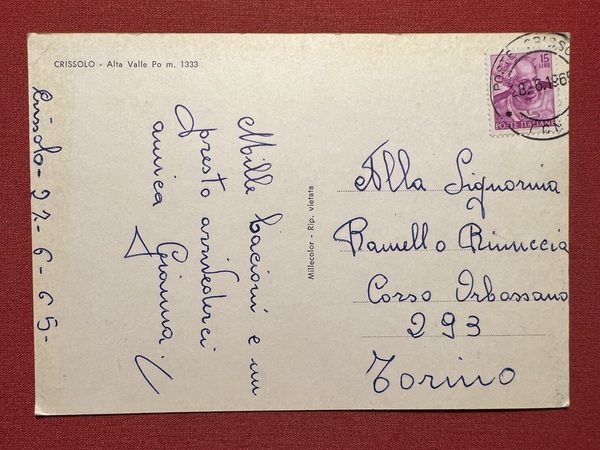 CRISSOLO - Alta Valle Po m. 1333
Crissolo - 27-6-65-
Mille bacioni e un
presto arrivederci
amica
Gianna
Millecolor - Rip. vietata
15
LIRE
POSTE ITALIANE
POSTE CRISSOLO
28.6.1965
Alla Signorina
Ramello Rinuccia
Corso Orbassano
293
Torino